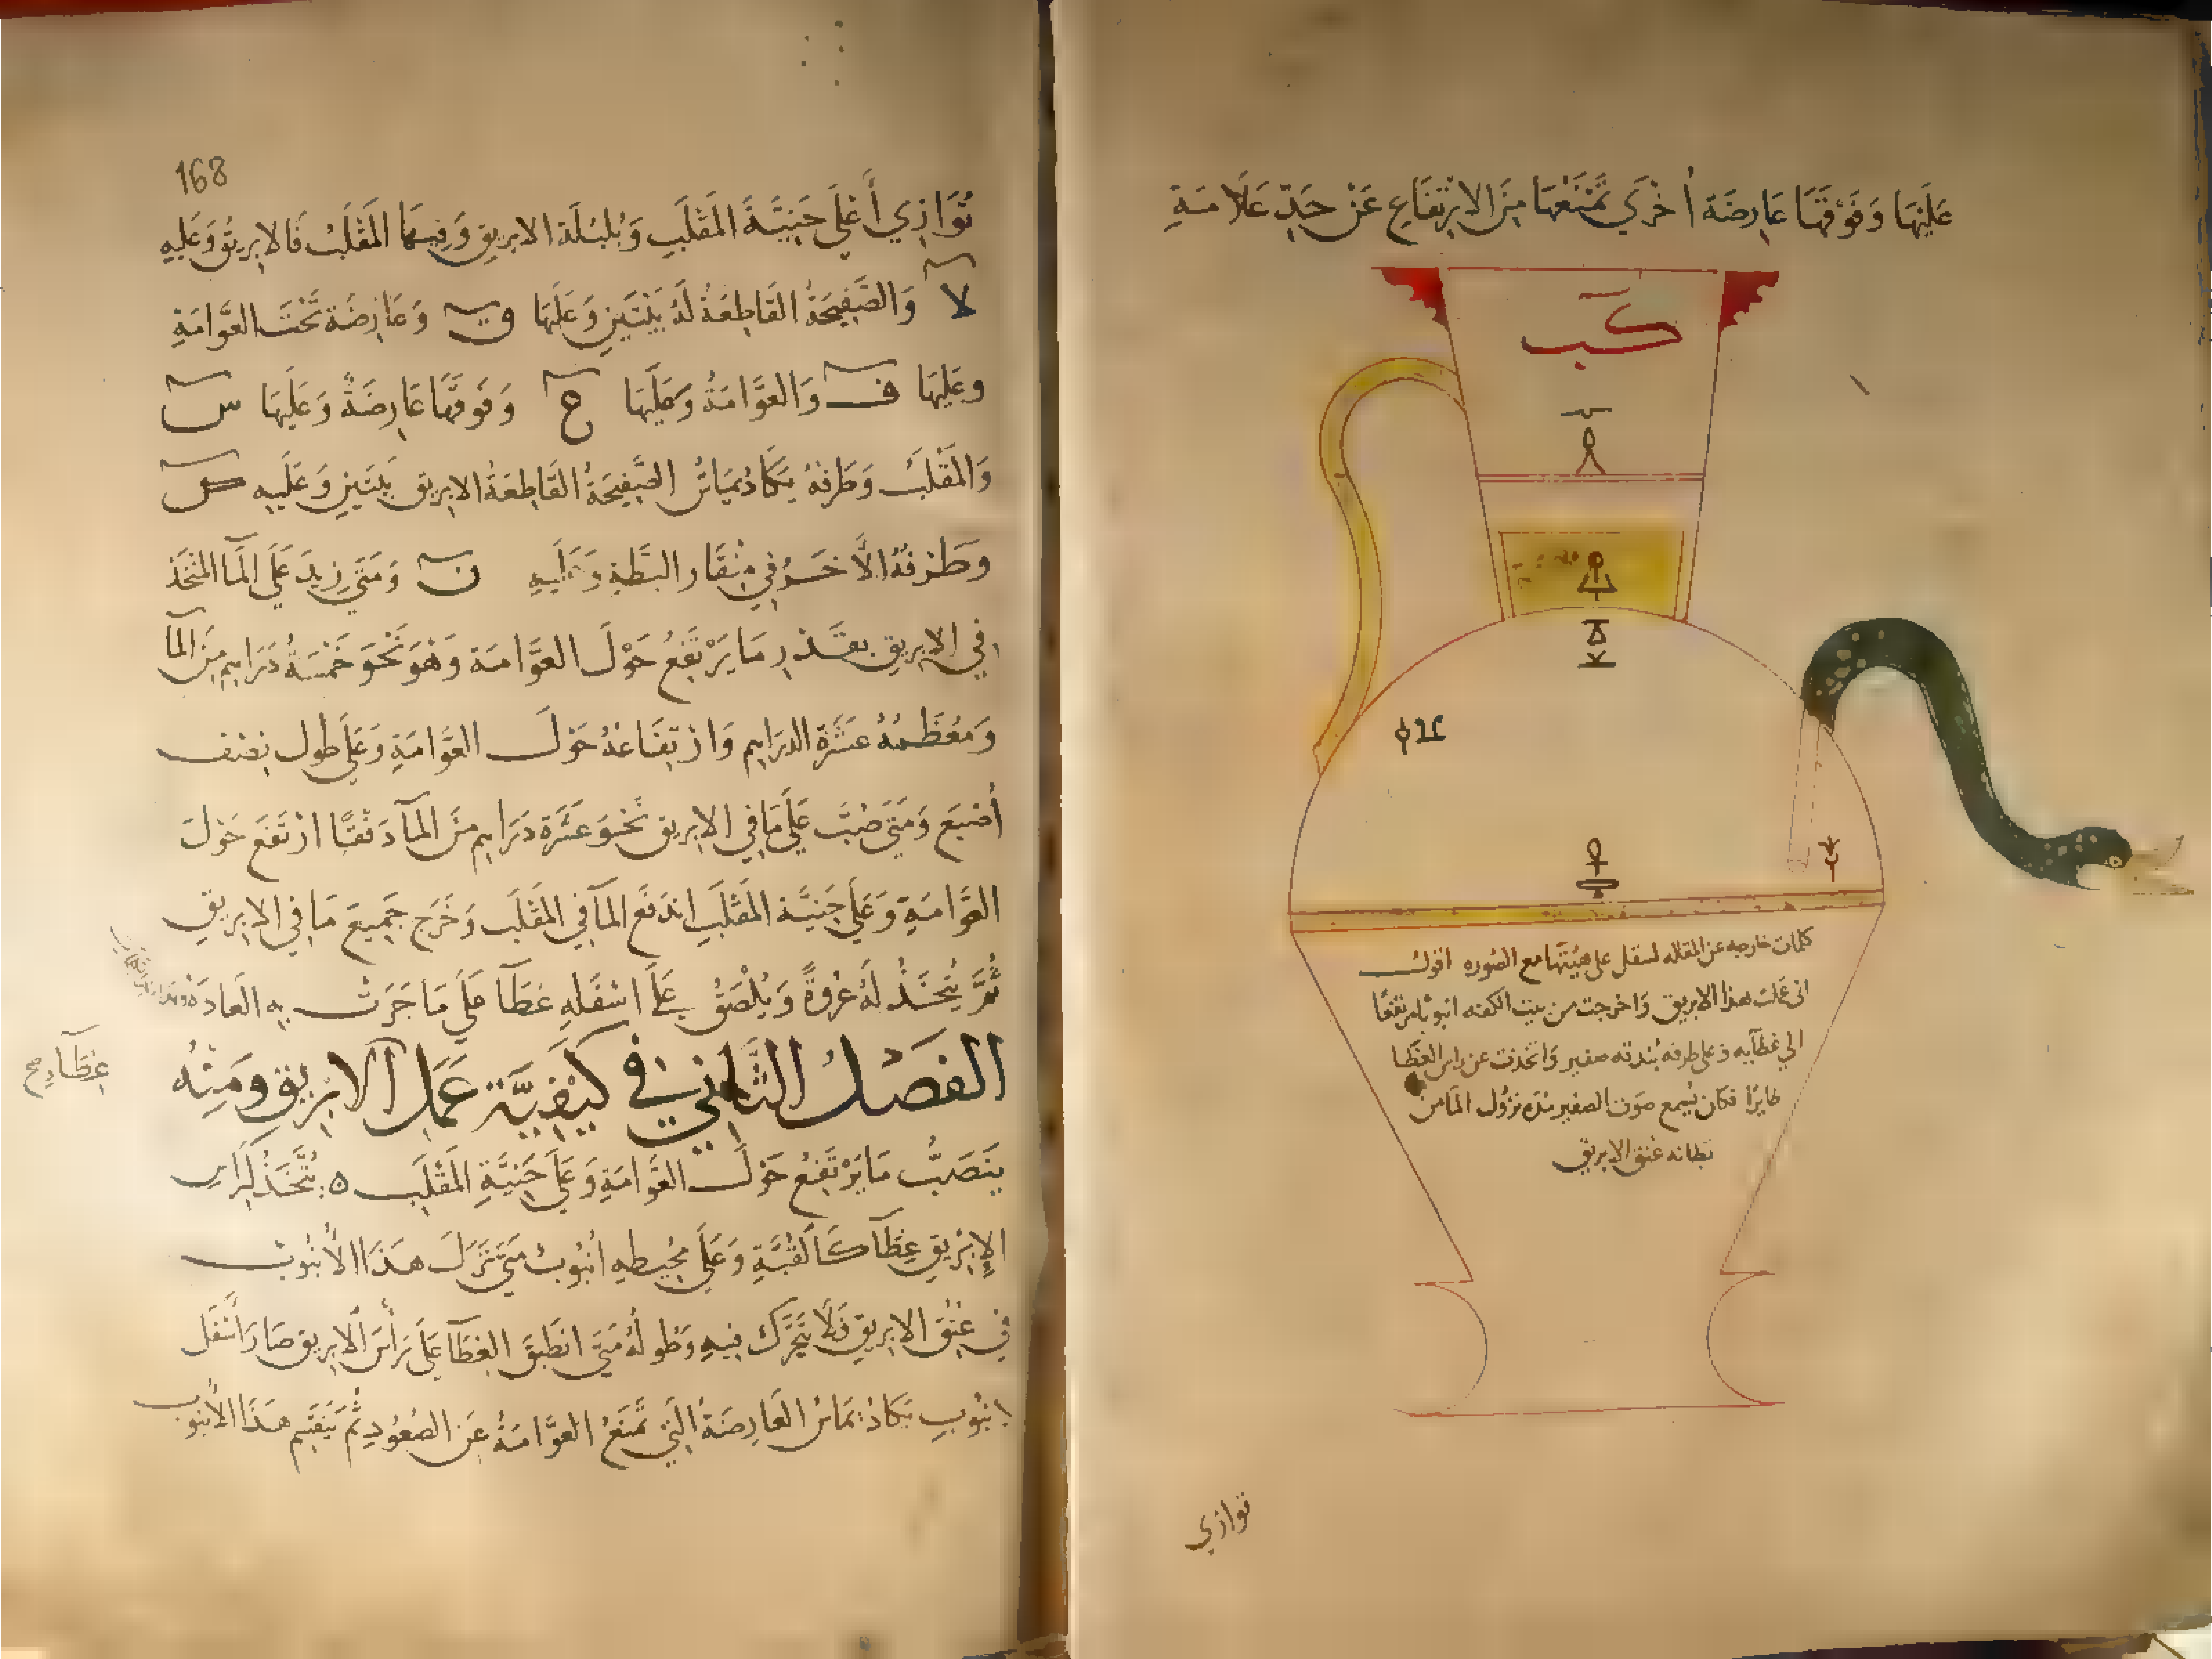 عَلَيْهَا وَفَوْقَهَا عَارِضَة أُخْرَي تَمْنَعُهَا مِنَ الاِرْتِفَاعِ عَنْ حَدِّ عَلَامَةِ
كب
كلمات خارجه عن المقاله لتنقل على هيئتها مع الصوره اقول
انى عملت هذا الابريق وَاخرجت من بيت الكفه انبوبًا مرتفعًا
الي غطآيه وعلى طرفه بندقه صفير وَاتخذت عن راس الغطا
طايرًا فكان يسمع صوت الصفير مدة نزول المآ من
بطانه عنق الابريق
توازي
168
تُوَازِي أَعْلَى جَنِبَيَّةَ المَقْلَبِ وَبُلْبُلَة الابريق وَفيهَا المَقْلَبُ فَالابريقُ وَعَلَيهِ
لا وَالصَّفِيحَةُ القَاطِعَةُ لَهُ بَيْتَيْنِ وَعَلَيْهَا وَعَارِضَة تَحْتَ العَوَّامَةِ
وعَلَيْهَا ف وَالعَوَّامَةُ وَعَلَيْهَا ع وَفَوْقَهَا عَارِضَةٌ وَعَلَيْهَا س
وَالمَقْلَبُ وَطَرَفهُ يَكَادُ يُمَاسُّ الصَّفِيحَةُ القَاطِعَةُ الابريق بَيْتَيْنِ وَعَلَيهِ ص
وَطَرَفهُ الأَخَرُ في مِنْقَار البَطَّةِ وَعَلَيهِ ن وَمَتَى زِيدَ عَلَى المآ المُتّخذ
في الابريق بقَدْرِ مَا يَرْتَفِعُ حَوْلَ العَوَّامَة وَهُوَ نَحْوَ خَمْسَةُ دَرَاهِم مِنَ المآ
وَمُعْظَمُهُ عَشَرَة الدرَاهِم وَارْتِفَاعهُ حَوْلَ العَوَّامَةِ وَعَلَى طول نِصْف
أُصْبَع وَمَتَى صُبَّ عَلَى مَا فِي الابريق نَحْوَ عَشَرَة دَرَاهِم مِنَ المَآ دَفْقًا ارْتَفَعَ حَوْلَ
العَوَّامَةِ وَعَلَى جَنِبَيَّة المَقْلَبِ اندَفَع المَآ فِي المَقْلَب وَخَرَج جَمِيعَ مَا فِي الابريق
ثُمَّ يُتّخَذُ لَهُ عُرْوَةً وَيُلْصَقُ عَلَى اسْفَلِهِ غطَآ عَلَى مَا جَرَتْ بِهِ العَادَة
غِطَآء صح
الفَصْلُ الثَّاني في كَيْفِيَّة عَمَلِ الابْرِيقِ وَمِنْهُ
يَنْصَبُّ مَا يَرْتَفِعُ حَوْلَ العَوَّامَةِ وَعَلَى جَنِبَيَّةِ المَقْلَبِ ه يُتّخَذُ لِرَاس
الإِبْرِيقِ غِطَآ كَالقُبَّةِ وَعَلَى مُحِيطِهِ اُنْبُوبُ مَتَى نَزَلَ هَذَا الأُنْبُوبُ
في عُنُقِ الابريقِ فَلَا يَتَحَرَّك فِيهِ وَطُولُهُ مَتَى انطَبَقَ الغِطَآ عَلَى رَأْسَ الابريق صَارَ أَسْفَل
الانبُوب يَكَادُ يُمَاسُّ العَارِضَةُ الَّتِي تَمْنَعُ العَوَّامَةُ عَن الصُعُودِ ثُمَّ يُقسَم هَذَا الأُنبُوب